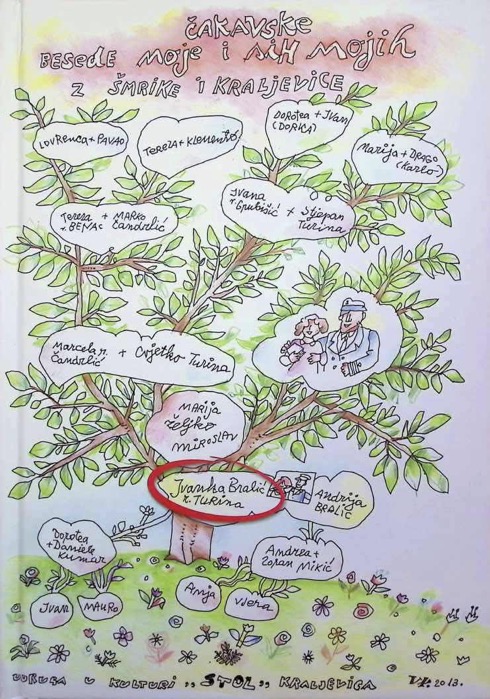 ČAKAVSKE
BESEDE MOJE I NIH MOJIH
Z ŠMRIKE I KRALJEVICE
LOVRENCA + PAVAO
TEREZA + KLEMENTO
DOROTEA + IVAN
(DORICA)
MARIJA + DRAGO
(KARLO)
Tereza + MARKO
r. BENAC Čandrlić
Ivana
r. Grubišić + Stjepan
Turina
Marcela r. + Cvjetko Turina
Čandrlić
MARIJA
Željko
MIROSLAV
Ivanka Bralić
r. TURINA
Andrija
BRALIĆ
Dorotea
+ Daniele
Kumar
Andrea +
Zoran MIKIĆ
IVAN
MAURO
Anja
VJERA
UDRUGA U KULTURI „STOL„ KRALJEVICA
2013.